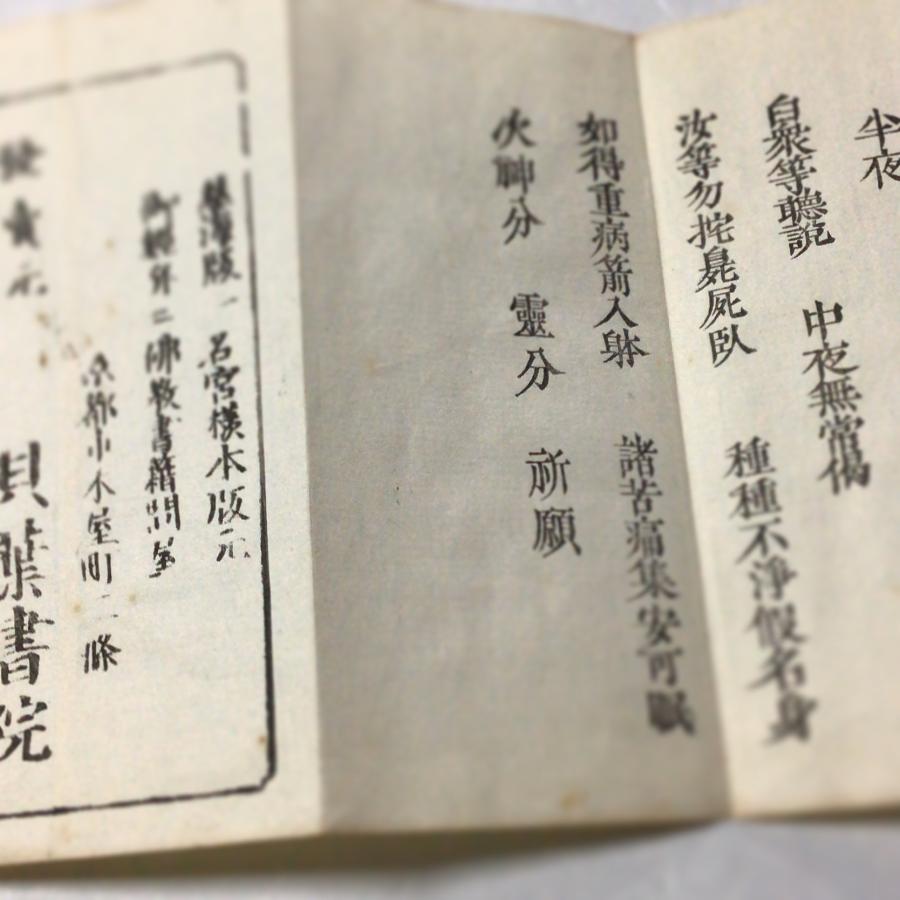 半夜
白衆等聽說 中夜無常偈
汝等勿抱臭屍臥 種種不淨假名身
如得重病箭入躰 諸苦痛集安可眠
次神分 靈分 祈願
黄檗版一名宮様本版元
御經弁ニ佛教書籍問屋
京都市木屋町二條
發賣元 貝葉書院